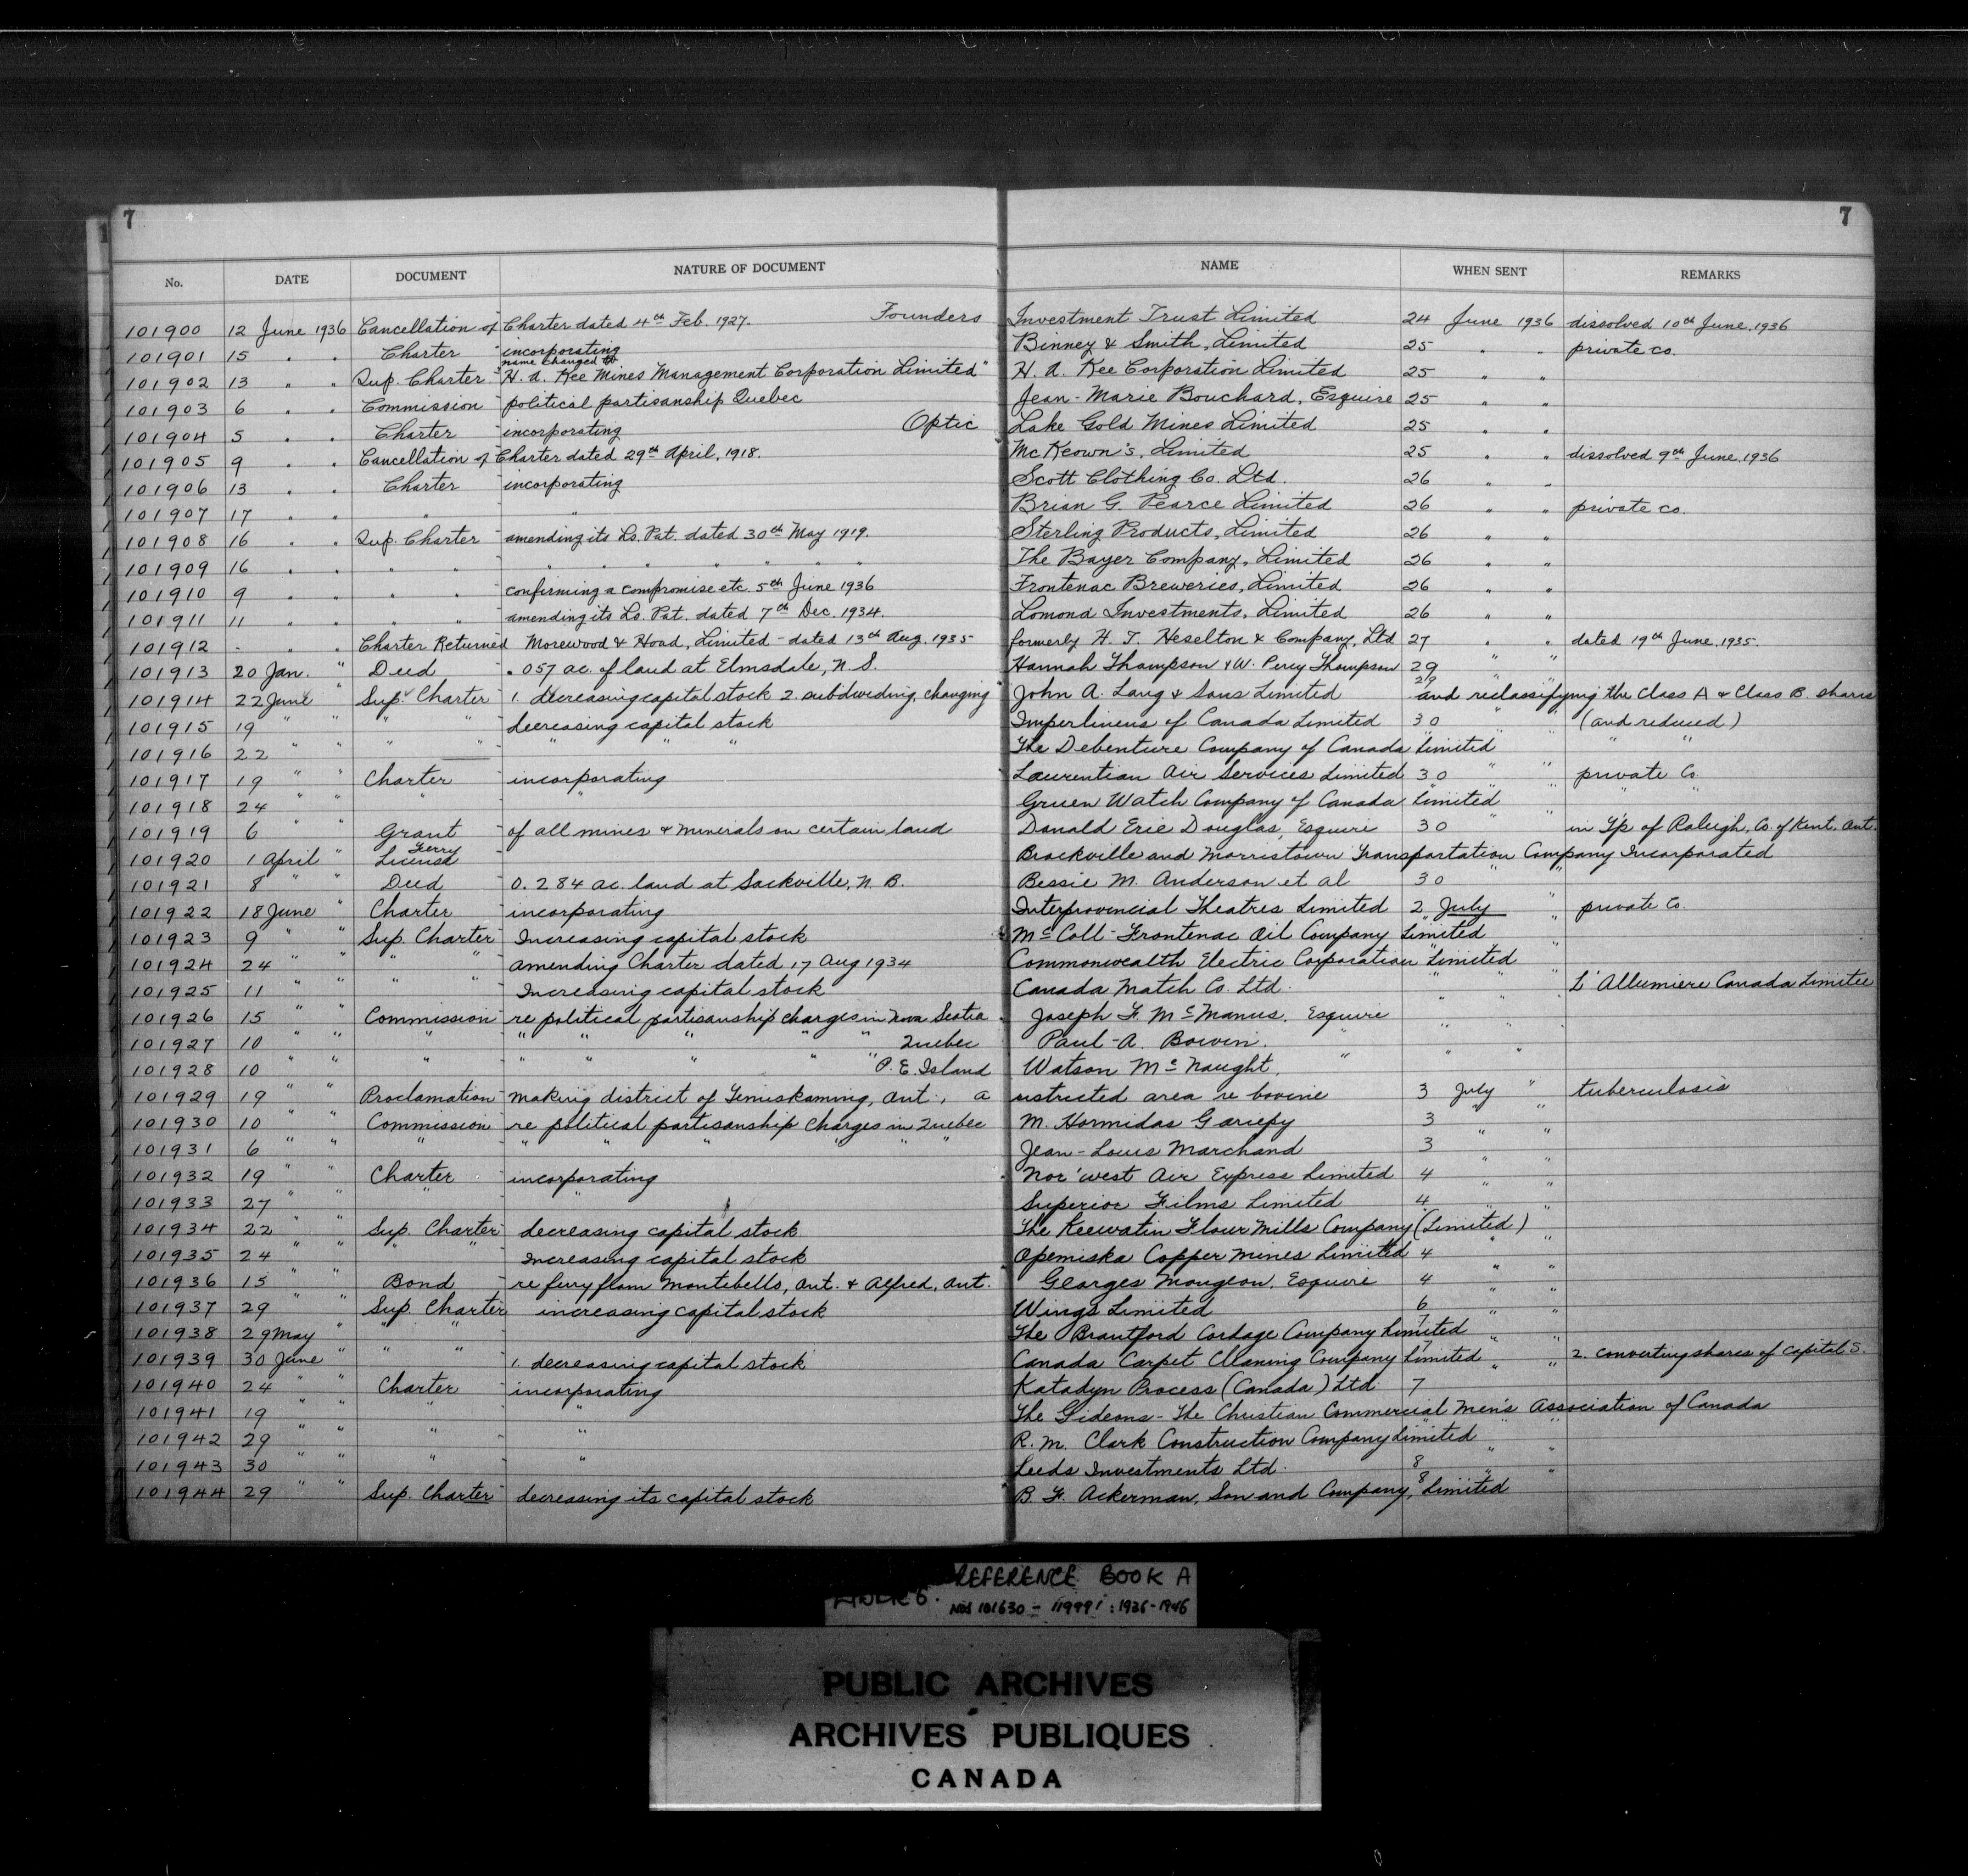 7 7
No. DATE DOCUMENT NATURE OF DOCUMENT NAME WHEN SENT REMARKS
101900 12 June 1936 Cancellation of Charter dated 4th Feb. 1927. Founders Investment Trust Limited 24 June 1936 dissolved 10th June, 1936
101901 15 " " Charter incorporating Binney & Smith, Limited 25 " " private co.
name changed to
101902 13 " " Sup. Charter "H. A. Kee Mines Management Corporation Limited" H. A. Kee Corporation Limited 25 " "
101903 6 " " Commission political partisanship Quebec Jean-Marie Bouchard, Esquire 25 " "
101904 5 " " Charter incorporating Optic Lake Gold Mines Limited 25 " "
101905 9 " " Cancellation of Charter dated 29th April, 1918. McKeown's, Limited 25 " " dissolved 9th June, 1936
101906 13 " " Charter incorporating Scott Clothing Co. Ltd. 26 " "
101907 17 " " " " Brian G. Pearce Limited 26 " " private co.
101908 16 " " Sup. Charter amending its Ls. Pat. dated 30th May 1919. Sterling Products, Limited 26 " "
101909 16 " " " " " " " " " " The Bayer Company, Limited 26 " "
101910 9 " " " " confirming a compromise etc. 5th June 1936 Frontenac Breweries, Limited 26 " "
101911 11 " " " " amending its Ls. Pat. dated 7th Dec. 1934. Lomond Investments, Limited 26 " "
101912 - " " Charter Returned Morewood & Hoad, Limited - dated 13th Aug. 1935 formerly H. T. Heselton & Company, Ltd 27 " " dated 19th June, 1935.
101913 20 Jan. " Deed .057 ac. of land at Elmsdale, N. S. Hannah Thompson & W. Percy Thompson 29 " "
101914 22 June " Sup. Charter 1. decreasing capital stock 2. subdividing, changing John A. Lang & Sons Limited 29 and reclassifying the Class A & Class B. shares
101915 19 " " " " decreasing capital stock Imperlinens of Canada Limited 30 " " (and reduced)
101916 22 " " " " " " The Debenture Company of Canada Limited " "
101917 19 " " Charter incorporating Laurentian Air Services Limited 30 " " private Co.
101918 24 " " " " Gruen Watch Company of Canada Limited " " "
101919 6 " " Grant of all mines & minerals on certain land Donald Eric Douglas, Esquire 30 in T'p of Raleigh, Co. of Kent, Ont.
101920 1 April " Ferry License Brockville and Morristown Transportation Company Incorporated
101921 8 " " Deed 0.284 ac. land at Sackville, N. B. Bessie M. Anderson et al 30 " "
101922 18 June " Charter incorporating Interprovincial Theatres Limited 2 July " private Co.
101923 9 " " Sup. Charter Increasing capital stock McColl-Frontenac Oil Company Limited "
101924 24 " " " " amending Charter dated 17 Aug 1934 Commonwealth Electric Corporation Limited "
101925 11 " " " " Increasing capital stock Canada Match Co. Ltd. " " " L'Allumiere Canada Limitee
101926 15 " " Commission re political partisanship charges in Nova Scotia Joseph F. McManus, Esquire " " "
101927 10 " " " " " " " " Quebec Paul-A. Boivin. " " "
101928 10 " " " " " " " " P. E. Island Watson McNaught. " " "
101929 19 " " Proclamation making district of Temiskaming, Ont., a restricted area re bovine 3 July " tuberculosis
101930 10 " " Commission re political partisanship charges in Quebec M. Hormidas Gariepy 3 " "
101931 6 " " " " " " " " " Jean-Louis Marchand 3 " "
101932 19 " " Charter incorporating Nor'west Air Express Limited 4 " "
101933 27 " " " " Superior Films Limited 4 " "
101934 22 " " Sup. Charter decreasing capital stock The Keewatin Flour Mills Company (Limited) "
101935 24 " " " " Increasing capital stock Opemiska Copper Mines Limited 4 " "
101936 15 " " Bond re ferry from Montebello, Ont. & Alfred, Ont. Georges Mongeon, Esquire 4 " "
101937 29 " " Sup. Charter increasing capital stock Wings Limited 6 " "
101938 29 May " " " The Brantford Cordage Company Limited 7 " "
101939 30 June " " " 1. decreasing capital stock Canada Carpet Cleaning Company Limited 7 " " 2. converting shares of capital S.
101940 24 " " Charter incorporating Katadyn Process (Canada) Ltd. 7
101941 19 " " " " The Gideons - The Christian Commercial Men's Association of Canada
101942 29 " " " " R. M. Clark Construction Company Limited " "
101943 30 " " " " Leeds Investments Ltd. 8 " "
101944 29 " " Sup. Charter decreasing its capital stock B. F. Ackerman, Son and Company, Limited 8
REFERENCE BOOK A
NOS 101630 - 119991 : 1936-1946
PUBLIC ARCHIVES
ARCHIVES PUBLIQUES
CANADA